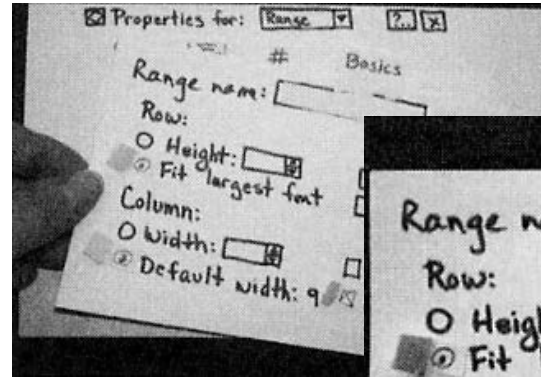 Properties for: Range ?.. x
# Basics
Range name:
Row:
Height:
Fit largest font
Column:
Width:
Default width: 9
Range n
Row:
Heigh
Fit